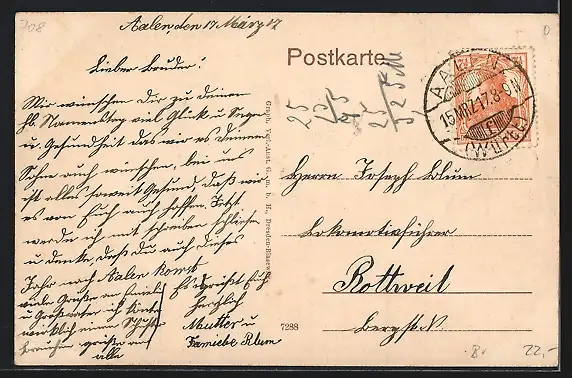 708
Aalen den 17 März 17
Postkarte
Lieber Bruder!
Wir wünschen Dir zu deinem
hb. Namenstag viel Glück u. Segen
u. Gesundheit das wir es deinem
Sohne auch wünschen, bei uns
ist alles soweit Gesund, daß wir
es von Euch auch hoffen. Jetzt
werde ich mit schreiben schließen
u denke, daß Du auch dieses
Jahr nach Aalen komst
viele Grüße an
u Großvater ich könte
wirklich einen
brauchen große an
alle
Es grüßt Euch
Herzlich
Mutter u
Familie Blum
Graph. Verl.-Anst. G. m. b. H., Dresden-Blasewitz
7288
AALEN
15.MRZ.17.8-9N
(Württ)
Herrn Joseph Blum
Lokomotivführer
Rottweil
Bergstr.
22,-